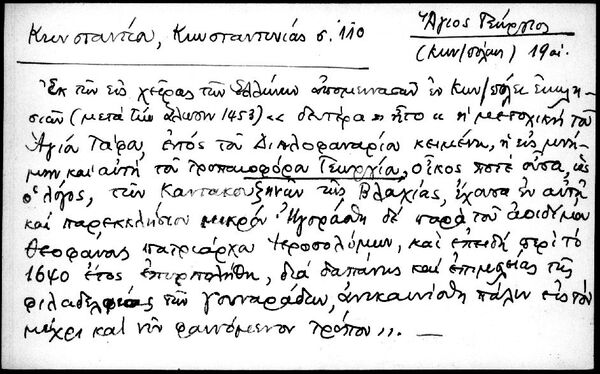 Κωνσταντίου, Κωνσταντινιάς σ. 110
Ἅγιος Γεώργιος
(Κων/πόλεως) 19 αἰ.
Ἐκ τῶν εἰς χεῖρας τῶν Ἑλλήνων ἀπομεινασῶν ἐν Κων/πόλει Ἐκκλη-
σιῶν (μετά τήν ἅλωσιν 1453) «δευτέρα» ἦτο «ἡ μετοχική τοῦ
Ἁγίου Τάφου, ἐντός τοῦ Διπλοφαναρίου κειμένη, ἡ εἰς μνή-
μην καί αὐτή τοῦ τροπαιοφόρου Γεωργίου, οἶκος ποτέ οὖσα, ὡς
ὁ λόγος, τῶν Καντακουζηνῶν τῆς Βλαχίας, ἔχουσα ἐν αὐτῇ
καί παρεκκλήσιον μικρόν. Ἠγοράσθη δέ παρά τοῦ ἀοιδίμου
Θεοφάνους πατριάρχου Ἱεροσολύμων, καί ἐπειδή περί τό
1640 ἔτος ἐπυρπολήθη, διά δαπάνης καί ἐπιμελείας τῆς
φιλαδελφίας τῶν γουναράδων, ἀνεκαινίσθη πάλιν εἰς τόν
μέχρι καί νῦν φαινόμενον τρόπον,,. —